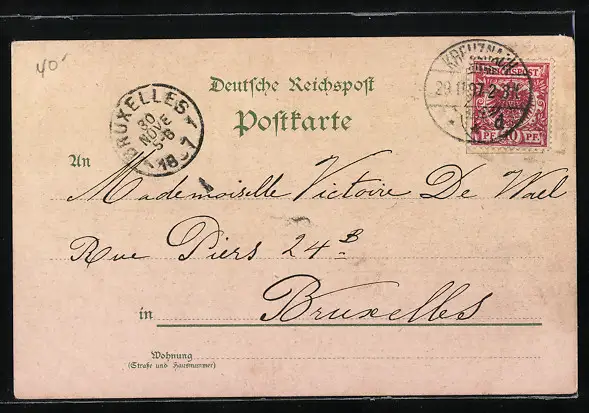 40-
Deutsche Reichspost
Postkarte
KREUZNACH
29.11.97.2-3N.
d
REICHSPOST
PF 10 PF
BRUXELLES
30
NOVE
5-6
1897
An
Mademoiselle Victoire De Wael
Rue Piers 24 B
in Bruxelles
Wohnung
(Straße und Hausnummer)